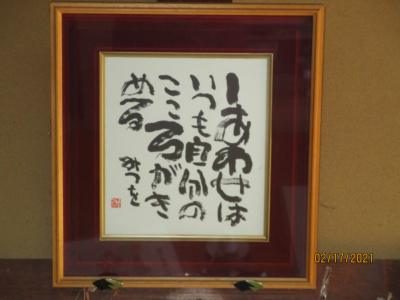 しあわせは
いつも自分の
こころがき
める
みつを
02/17/2021